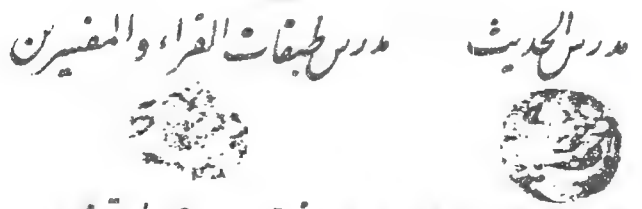 مدرس الحديث
مدرس طبقات القراء والمفسرين